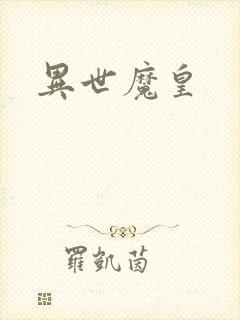 異世魔皇
羅凱茵